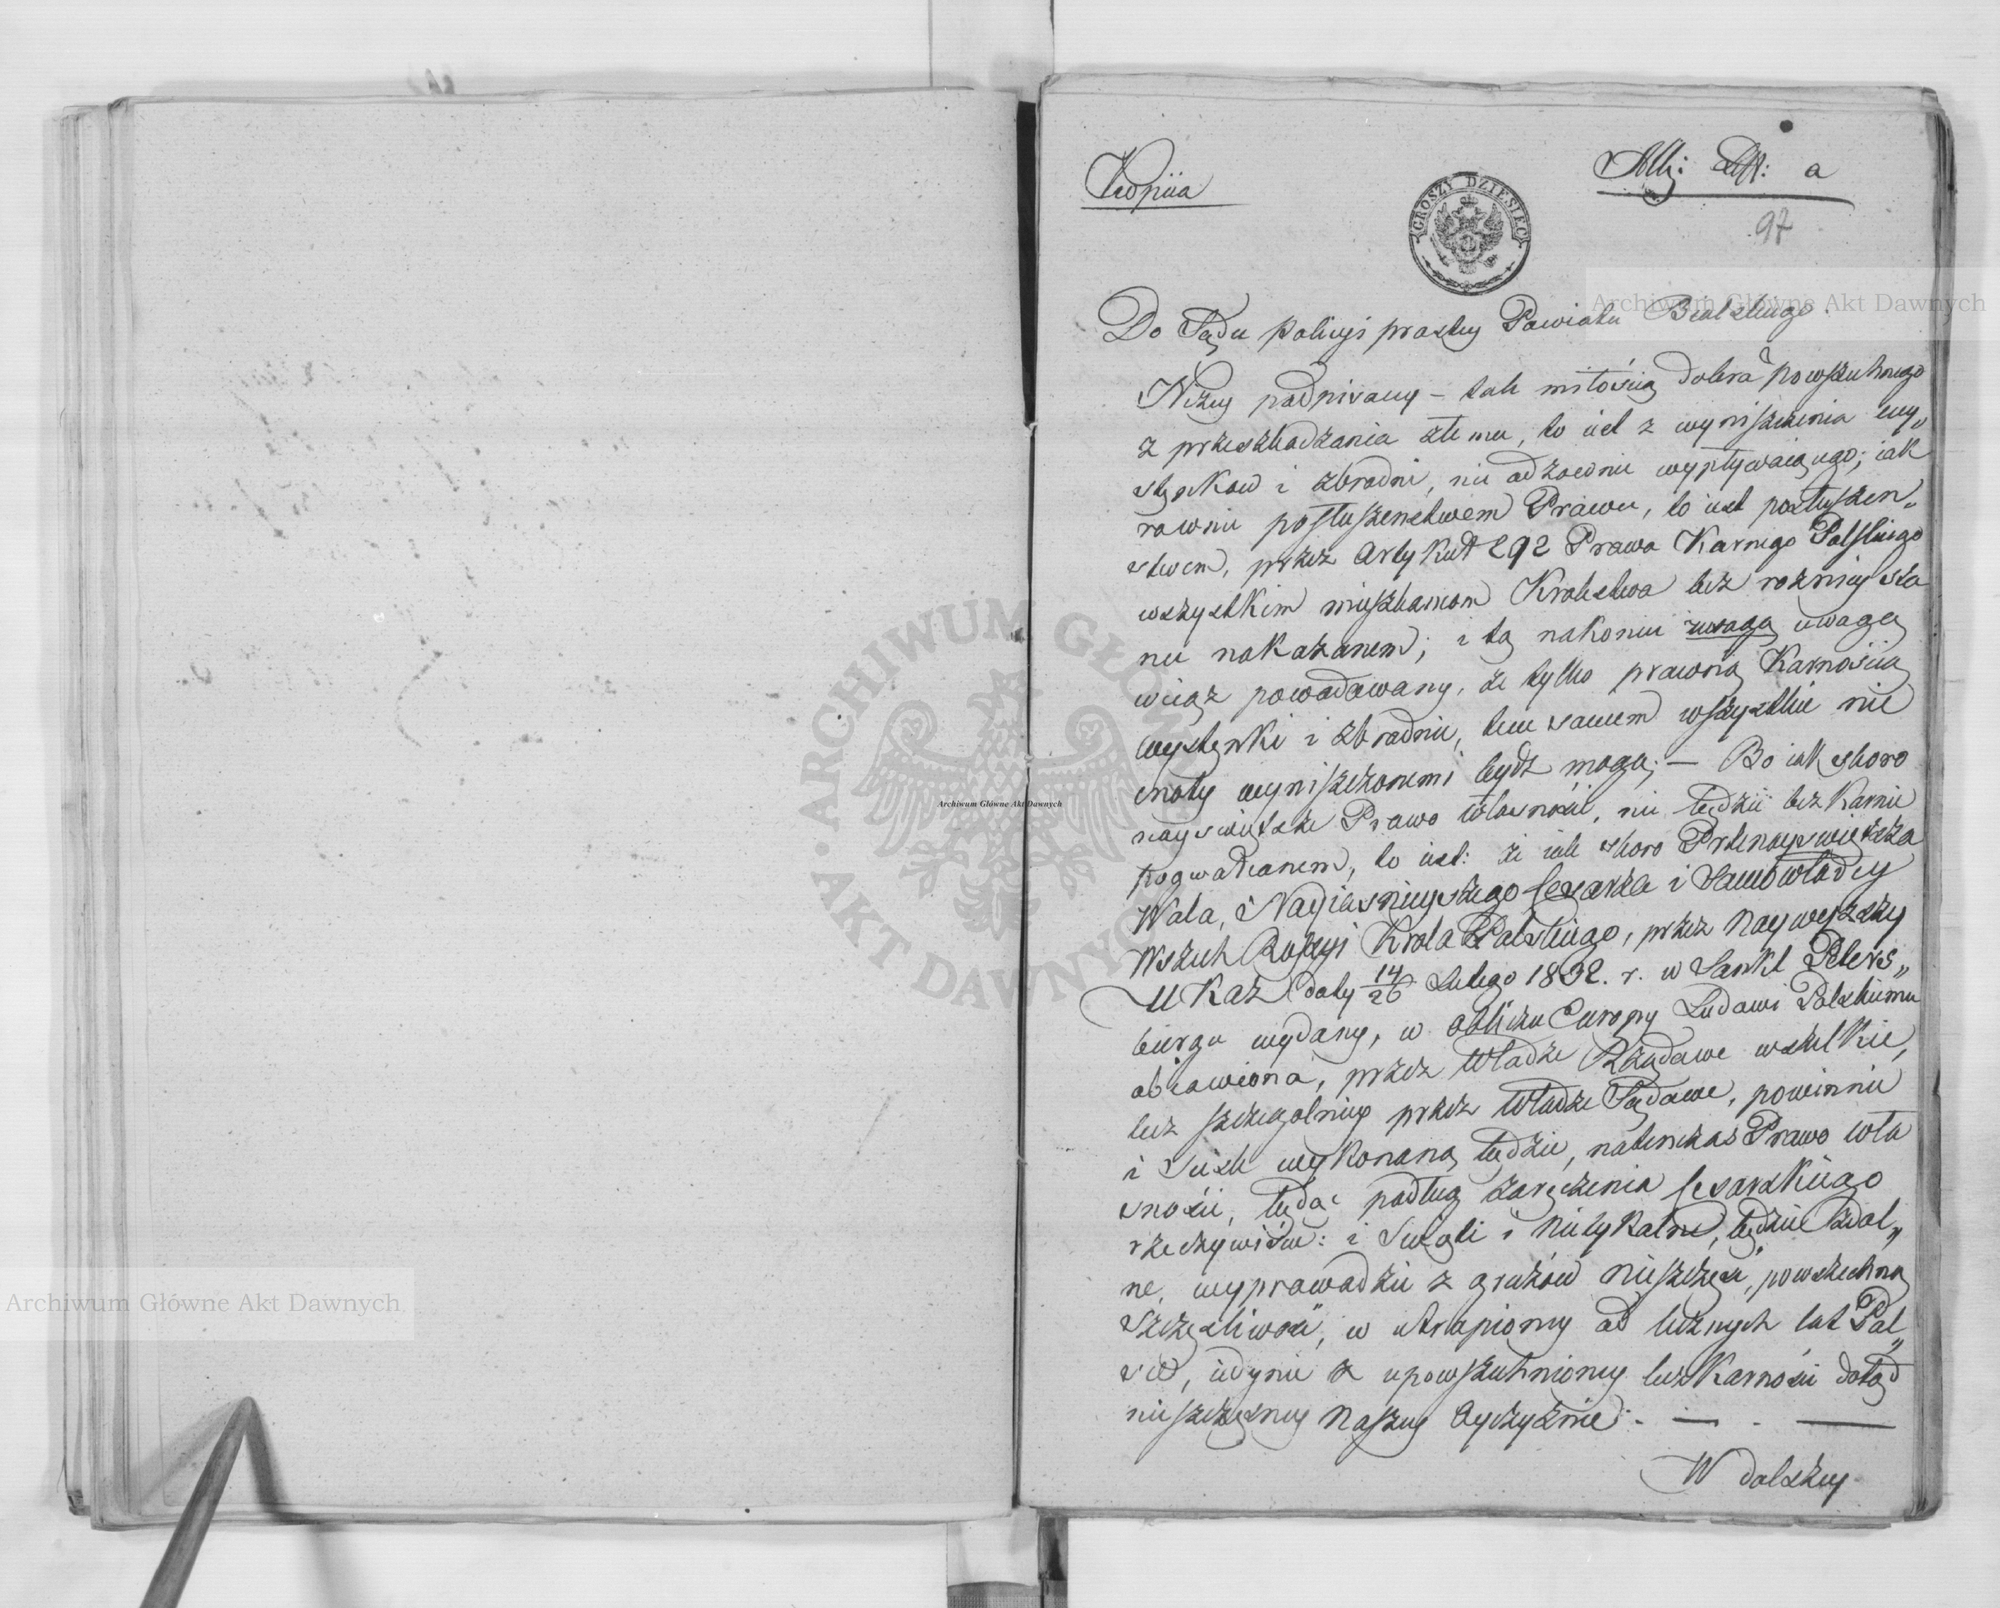 Kopiia
Allg: Litt: a
97
GROSZY DZIESIĘĆ
Do Sądu Policyi prostey Powiatu Bialskiego.
Niżey podpisany – tak miłością dobra powszechnego
z przeszkadzania złemu, to iest z wyniszczenia wy„
stępkow i zbrodni, nie odzownie wypływaiącego; iak
rownie posłuszenstwem Prawu, to iest posłuszen„
stwem, przez Artykuł 292 Prawa Karnego Polskiego
wszystkim mieszkancom Krolestwa bez rożnicy sta
nu nakazanem; i tą nakoniec uwagą uwagą
wciąż powodowany, że tylko prawną Karnością
występki i zbrodnie, tem samem wszystkie nie
cnoty wyniszczonemi bydź mogą; – Bo iak skoro
nayswiętsze Prawo własności, nie będzie bezkarnie
pogwałcanem, to iest: że iak skoro Przenayswiętsza
Wola, Nayiasnieyszego Cesarza i Samowładcy
Wszech Rossyi Krola Polskiego, przez Naywyższy
Ukaz daty 14/26 Lutego 1832. r. w Sankt Peters„
burgu wydany, w obliczu Europy Ludowi Polskiemu
obiawiona, przez Władze Rządowe wszelkie,
lecz szczegolniey przez Władze Sądowe, powinnie
i scisle wykonaną będzie, natenczas Prawo wła
sności, będąc podług zaręczenia Cesarskiego
rzeczywiście: i Swięte i Nietykalne, będzie zdol„
ne, wyprowadzić z gruzów nieszczęść, powszechną
szczęśliwość, w utrapioney od licznych lat Pol„
sce, iedynie z upowszechnioney bezkarności dotąd
nieszczęsney Naszey Oyczyznie: – — . ——
W dalszey
Archiwum Główne Akt Dawnych
Archiwum Główne Akt Dawnych
Archiwum Główne Akt Dawnych
ARCHIWUM GŁÓWNE AKT DAWNYCH